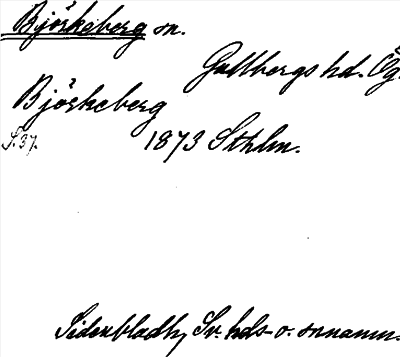 Björkeberg sn.
Gullbergs hd. Ög.
Björkeberg
S. 37. 1873 Sthlm.
Sidenbladh, Sv. hds- o. snnamn.